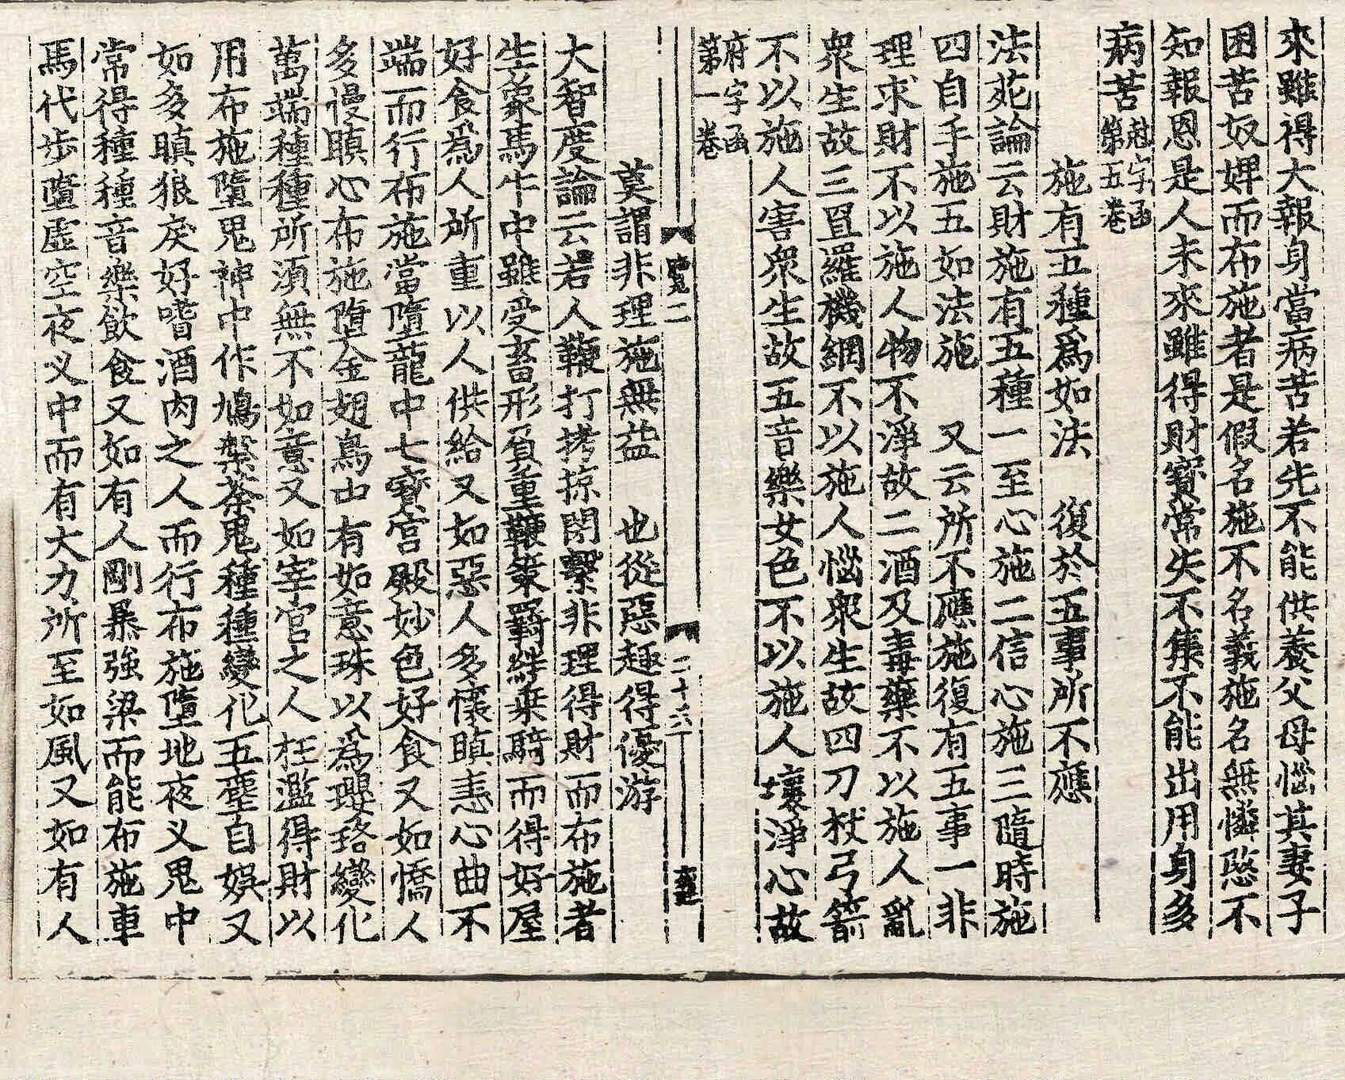 來雖得大報身當病苦若先不能供養父母惱其妻子
困苦奴婢而布施者是假名施不名義施名無憐愍不
知報恩是人未來雖得財寶常失不集不能出用身多
病苦
第五卷
施有五種為如法　復於五事所不應
法苑論云財施有五種一至心施二信心施三隨時施
四自手施五如法施　又云所不應施復有五事一非
理求財不以施人物不淨故二酒及毒藥不以施人亂
衆生故三罝羅機網不以施人惱衆生故四刀杖弓箭
不以施人害衆生故五音樂女色不以施人壞淨心故
府字函
第一卷
二十六
莫謂非理施無益　也從惡趣得優游
大智度論云若人鞭打拷掠閉繫非理得財而布施者
生象馬牛中雖受畜形負重鞭策羇絆乗騎而得好屋
好食為人所重以人供給又如惡人多懷瞋恚心曲不
端而行布施當墮龍中七寳宮殿妙色好食又如憍人
多慢瞋心布施墮金翅鳥中有如意珠以為瓔珞變化
萬端種種所須無不如意又如宰官之人枉濫得財以
用布施墮鬼神中作鳩槃荼鬼種種變化五塵自娛又
如多瞋狼戾好嗜酒肉之人而行布施墮地夜叉鬼中
常得種種音樂飲食又如有人剛暴強梁而能布施車
馬代步墮虛空夜叉中而有大力所至如風又如有人